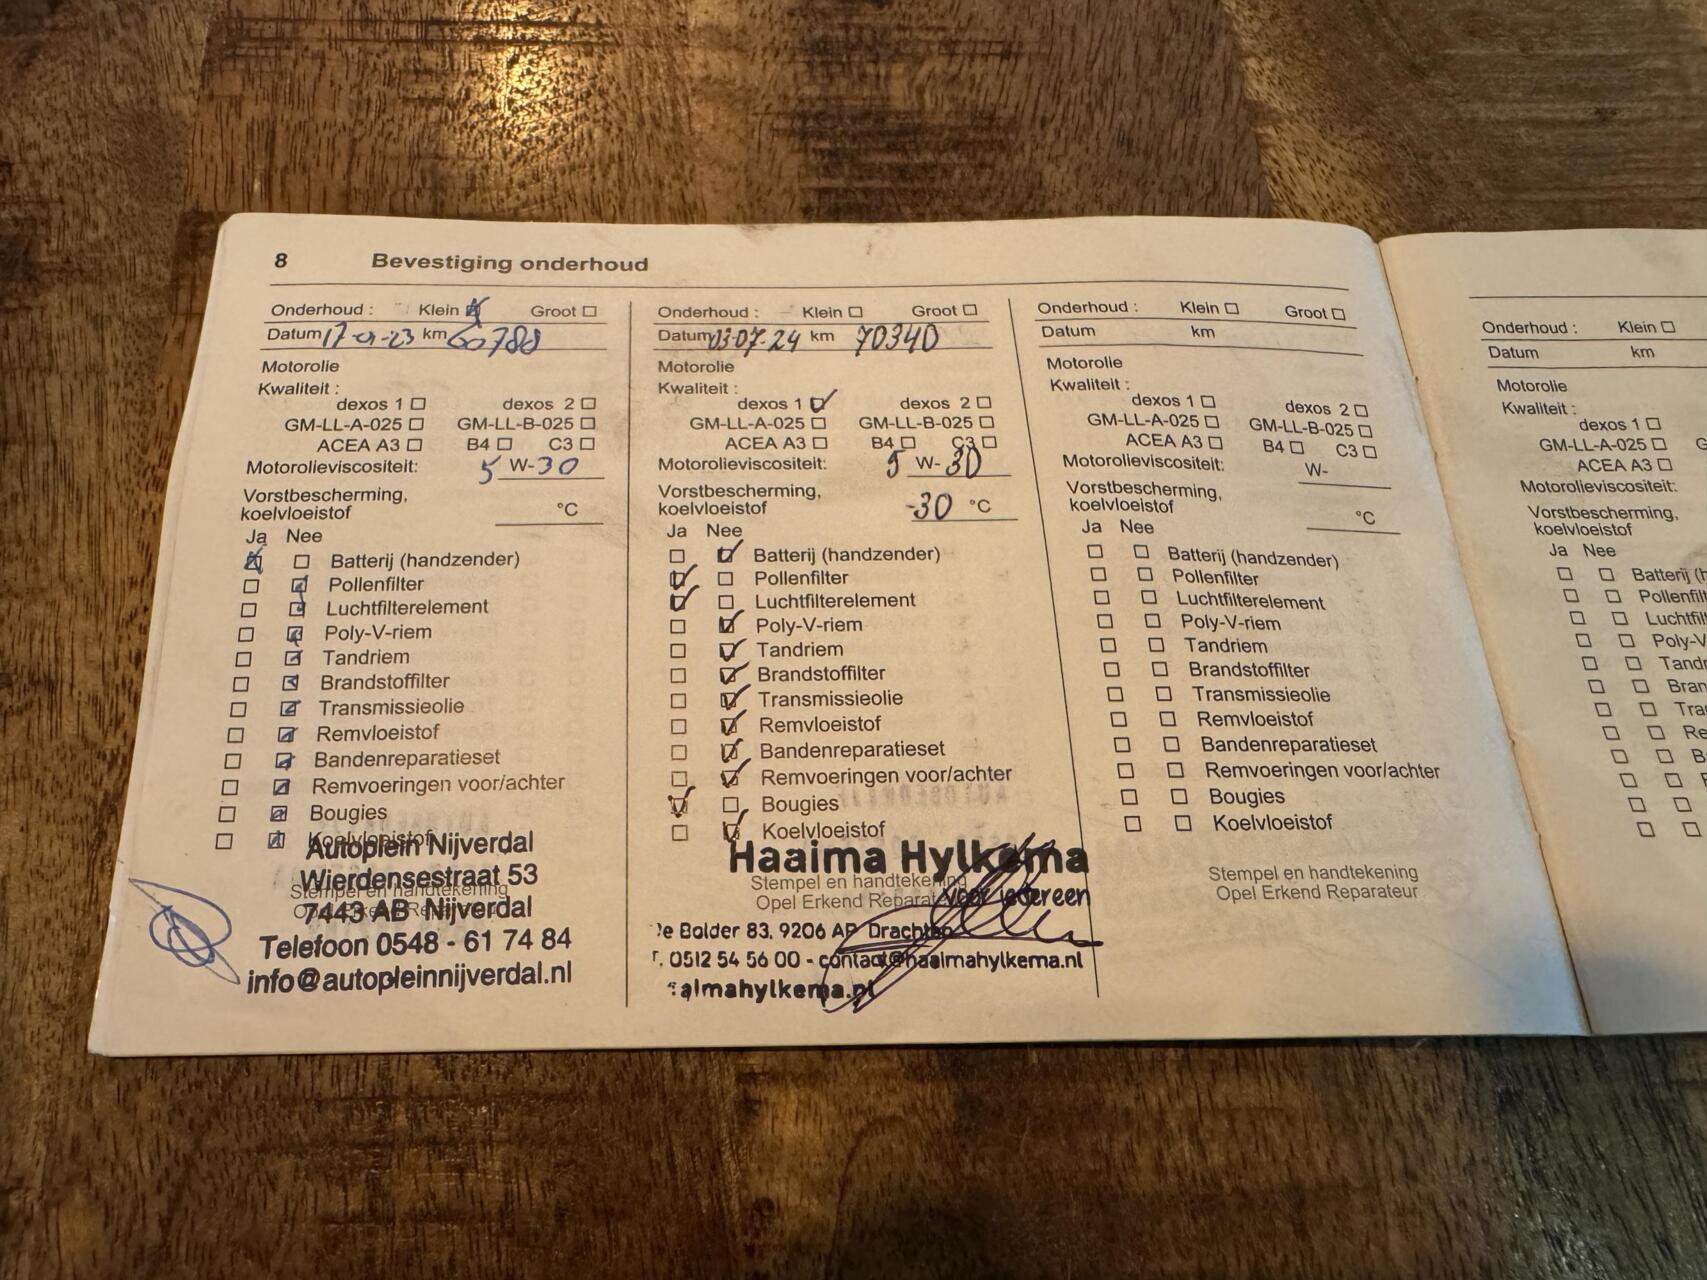 8 Bevestiging onderhoud
Onderhoud : Klein Groot
Datum 17-01-23 km 60788
Motorolie
Kwaliteit :
dexos 1 dexos 2
GM-LL-A-025 GM-LL-B-025
ACEA A3 B4 C3
Motorolieviscositeit: 5 W-30
Vorstbescherming,
koelvloeistof °C
Ja Nee
Batterij (handzender)
Pollenfilter
Luchtfilterelement
Poly-V-riem
Tandriem
Brandstoffilter
Transmissieolie
Remvloeistof
Bandenreparatieset
Remvoeringen voor/achter
Bougies
Koelvloeistof
Autoplein Nijverdal
Wierdensestraat 53
Stempel en handtekening
7443 AB Nijverdal
Telefoon 0548 - 61 74 84
info@autopleinnijverdal.nl
Onderhoud : Klein Groot
Datum 03-07-24 km 70340
Motorolie
Kwaliteit :
dexos 1 dexos 2
GM-LL-A-025 GM-LL-B-025
ACEA A3 B4 C3
Motorolieviscositeit: 5 W-30
Vorstbescherming,
koelvloeistof -30 °C
Ja Nee
Batterij (handzender)
Pollenfilter
Luchtfilterelement
Poly-V-riem
Tandriem
Brandstoffilter
Transmissieolie
Remvloeistof
Bandenreparatieset
Remvoeringen voor/achter
Bougies
Koelvloeistof
Haaima Hylkema
Stempel en handtekening
Opel Erkend Reparateur
voor iedereen
De Bolder 83, 9206 AP Drachten
T. 0512 54 56 00 - contact@haaimahylkema.nl
haaimahylkema.nl
Onderhoud : Klein Groot
Datum km
Motorolie
Kwaliteit :
dexos 1 dexos 2
GM-LL-A-025 GM-LL-B-025
ACEA A3 B4 C3
Motorolieviscositeit: W-
Vorstbescherming,
koelvloeistof °C
Ja Nee
Batterij (handzender)
Pollenfilter
Luchtfilterelement
Poly-V-riem
Tandriem
Brandstoffilter
Transmissieolie
Remvloeistof
Bandenreparatieset
Remvoeringen voor/achter
Bougies
Koelvloeistof
Stempel en handtekening
Opel Erkend Reparateur
Onderhoud : Klein
Datum km
Motorolie
Kwaliteit :
dexos 1
GM-LL-A-025 G
ACEA A3
Motorolieviscositeit:
Vorstbescherming,
koelvloeistof
Ja Nee
Batterij (h
Pollenfilt
Luchtfil
Poly-V
Tandr
Bran
Tra
Re
B